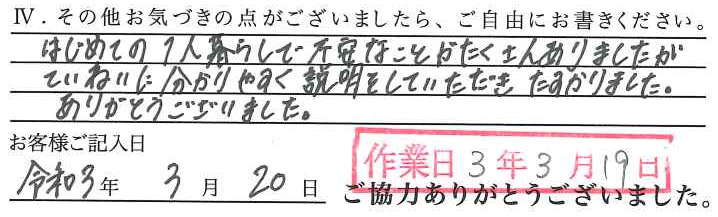 Ⅳ．その他お気づきの点がございましたら、ご自由にお書きください。
はじめての1人暮らしで不安なことがたくさんありましたが
ていねいに分かりやすく説明をしていただきたすかりました。
ありがとうございました。
お客様ご記入日
令和3年 3月 20日
作業日 3年3月19日
ご協力ありがとうございました。